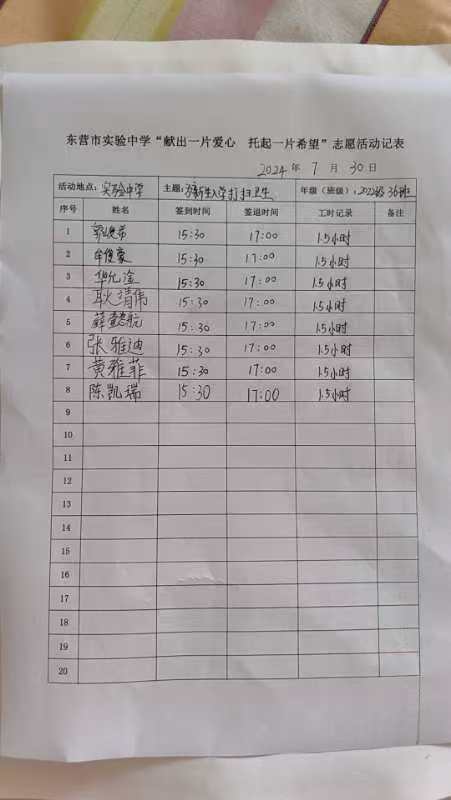 东营市实验中学“献出一片爱心 托起一片希望”志愿活动记表
2024 年 7 月 30 日
活动地点：实验中学 主题：为新生入学打扫卫生 年级（班级）：2022级36班
序号 姓名 签到时间 签退时间 工时记录 备注
1 15:30 17:00 1.5小时
2 牟俊豪 15:30 17:00 1.5小时
3 华允淦 15:30 17:00 1.5小时
4 耿靖伟 15:30 17:00 1.5小时
5 薛懿航 15:30 17:00 1.5小时
6 张雅迪 15:30 17:00 1.5小时
7 黄雅菲 15:30 17:00 1.5小时
8 陈凯瑞 15:30 17:00 1.5小时
9
10
11
12
13
14
15
16
17
18
19
20